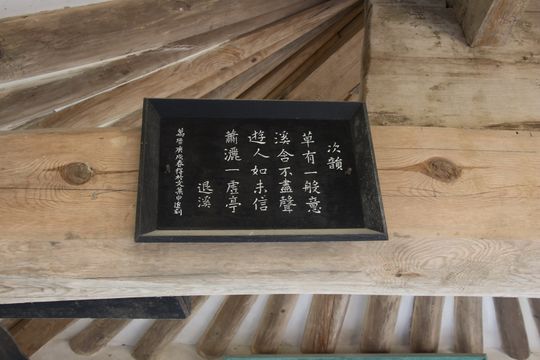 次韻
草有一般意
溪含不盡聲
遊人如未信
蕭灑一虛亭
退溪
萬曆庚戌春